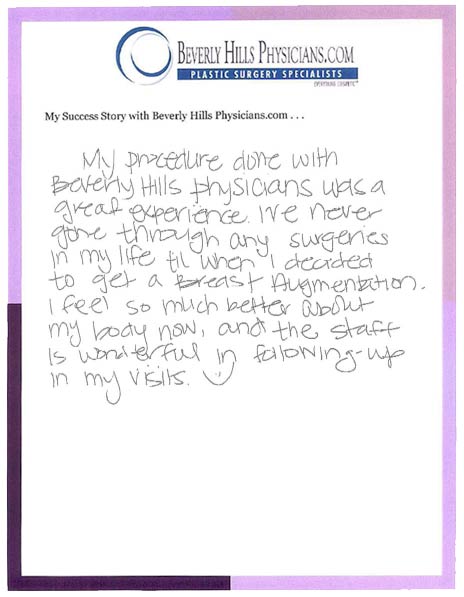 BEVERLY HILLS PHYSICIANS.COM
PLASTIC SURGERY SPECIALISTS
EVERYTHING COSMETIC
My Success Story with Beverly Hills Physicians.com . . .
My procedure done with
Beverly Hills physicians was a
great experience. I've never
gone through any surgeries
in my life til when I decided
to get a Breast Augmentation.
I feel so much better about
my body now, and the staff
is wonderful in following-up
in my visits.